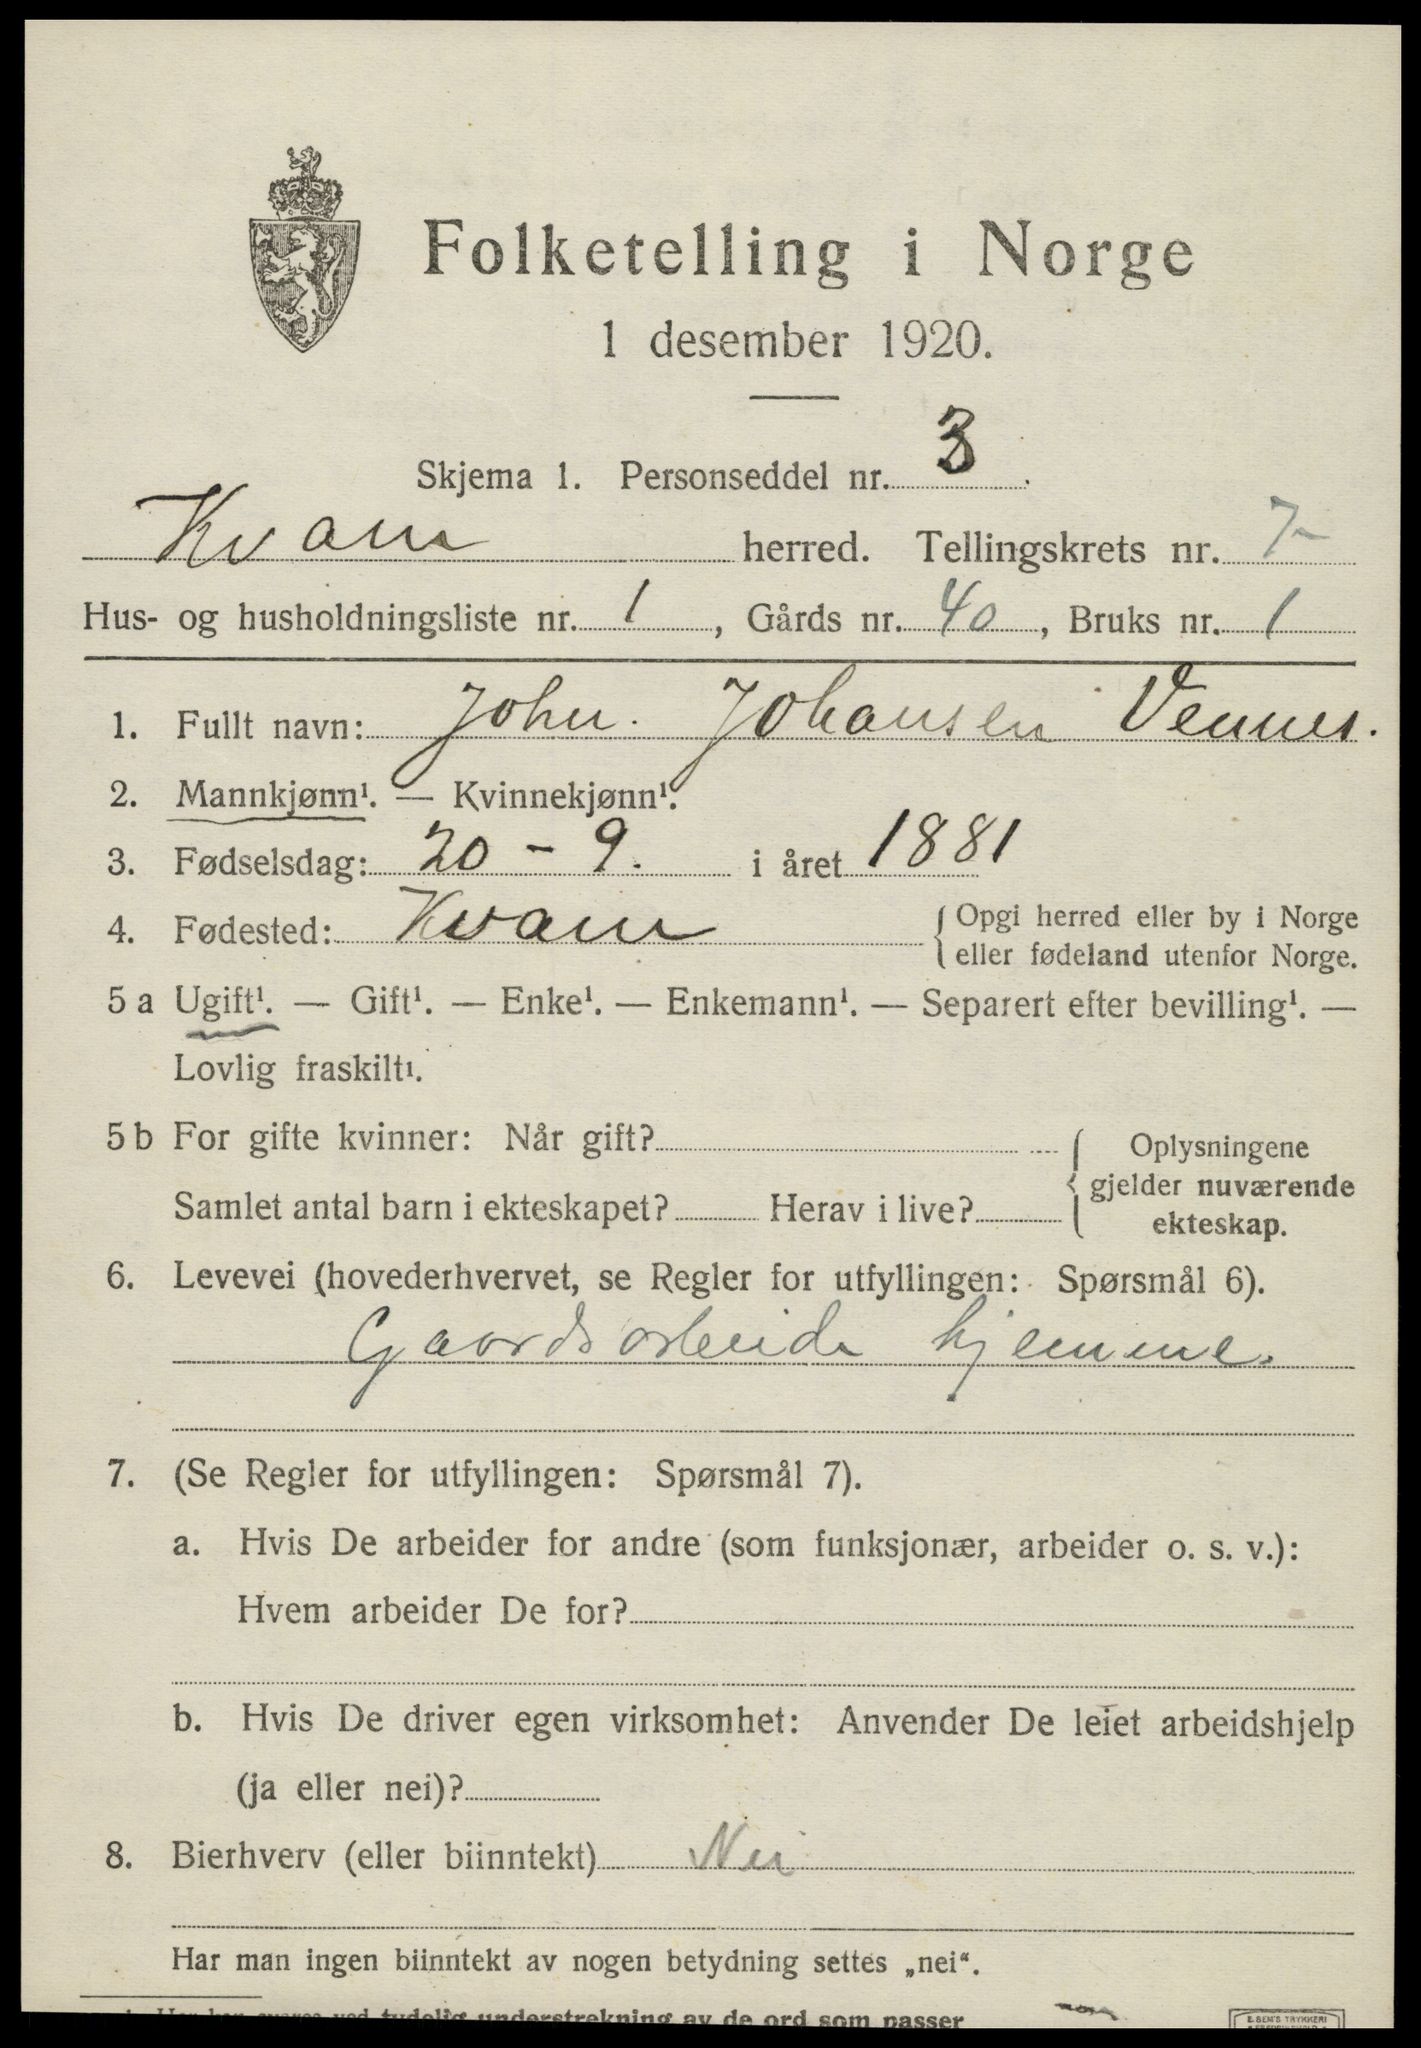 Folketelling i Norge
1 desember 1920.
Skjema 1. Personseddel nr. 3
Kvam herred. Tellingskrets nr. 7
Hus- og husholdningsliste nr. 1, Gårds nr. 40, Bruks nr. 1
1. Fullt navn: John. Johansen Vennes.
2. Mannkjønn¹. — Kvinnekjønn¹.
3. Fødselsdag: 20 - 9. i året 1881
4. Fødested: Kvam { Opgi herred eller by i Norge
eller fødeland utenfor Norge.
5 a Ugift¹. — Gift¹. — Enke¹. — Enkemann¹. — Separert efter bevilling¹. —
Lovlig fraskilt¹.
5 b For gifte kvinner: Når gift? { Oplysningene
gjelder nuværende
Samlet antal barn i ekteskapet? Herav i live? ekteskap.
6. Levevei (hovederhvervet, se Regler for utfyllingen: Spørsmål 6).
Gaardsarbeide hjemme.
7. (Se Regler for utfyllingen: Spørsmål 7).
a. Hvis De arbeider for andre (som funksjonær, arbeider o. s. v.):
Hvem arbeider De for?
b. Hvis De driver egen virksomhet: Anvender De leiet arbeidshjelp
(ja eller nei)?
8. Bierhverv (eller biinntekt) Nei
Har man ingen biinntekt av nogen betydning settes „nei“.
¹ Her kan svares ved tydelig understrekning av de ord som passer
E. SEM'S TRYKKERI